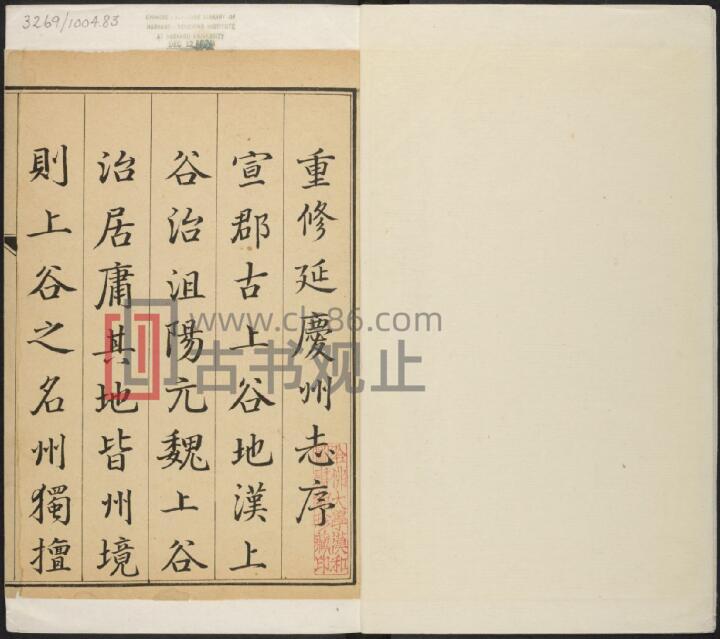 3269/1004.83
CHINESE-JAPANESE LIBRARY OF
HARVARD-YENCHING INSTITUTE
AT HARVARD UNIVERSITY
DEC 12
重修延慶州志序
宣郡古上谷地漢上
谷治沮陽元魏上谷
治居庸其地皆州境
則上谷之名州獨擅
哈佛大學漢和
圖書館珍藏印
www.ch86.com
古书观止